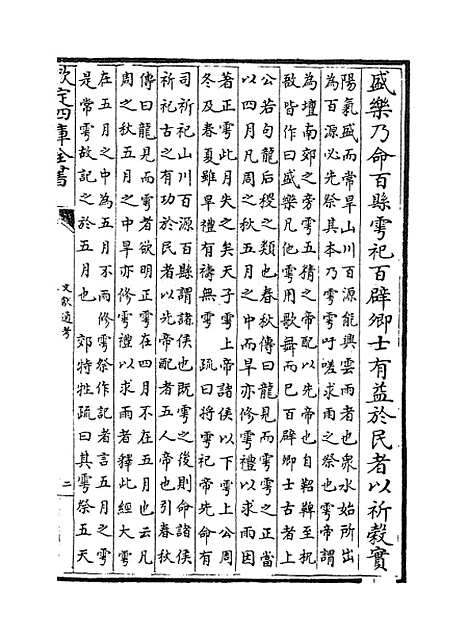 盛樂乃命百縣雩祀百辟卿士有益於民者以祈穀實
陽氣盛而常旱山川百源能興雲雨者也衆水始所出
為百源必先祭其本乃雩雩吁嗟求雨之祭也雩帝謂
為壇南郊之旁雩五精之帝配以先帝也自鞀鞞至柷
敔皆作曰盛樂凡他雩用歌舞而已百辟卿士古者上
公若句龍后稷之類也春秋傳曰龍見而雩雩之正當
以四月凡周之秋五月之中而旱亦修雩禮以求雨因
著正雩此月失之矣天子雩上帝諸侯以下雩上公周
冬及春夏雖旱禮有禱無雩　疏曰將雩祀帝先命有
司祈祀山川百源百縣謂諸侯也既雩之後則命諸侯
祈祀古之有功於民者以先帝配者五人帝也引春秋
傳曰龍見而雩者欲明正雩在四月不在五月也云凡
周之秋五月之中旱亦修雩禮以求雨者釋此經大雩
在五月之中為五月不雨修雩祭作記者言五月之雩
是常雩故記之於五月也　郊特牲疏曰其雩祭五天
欽定四庫全書
文獻通考
二